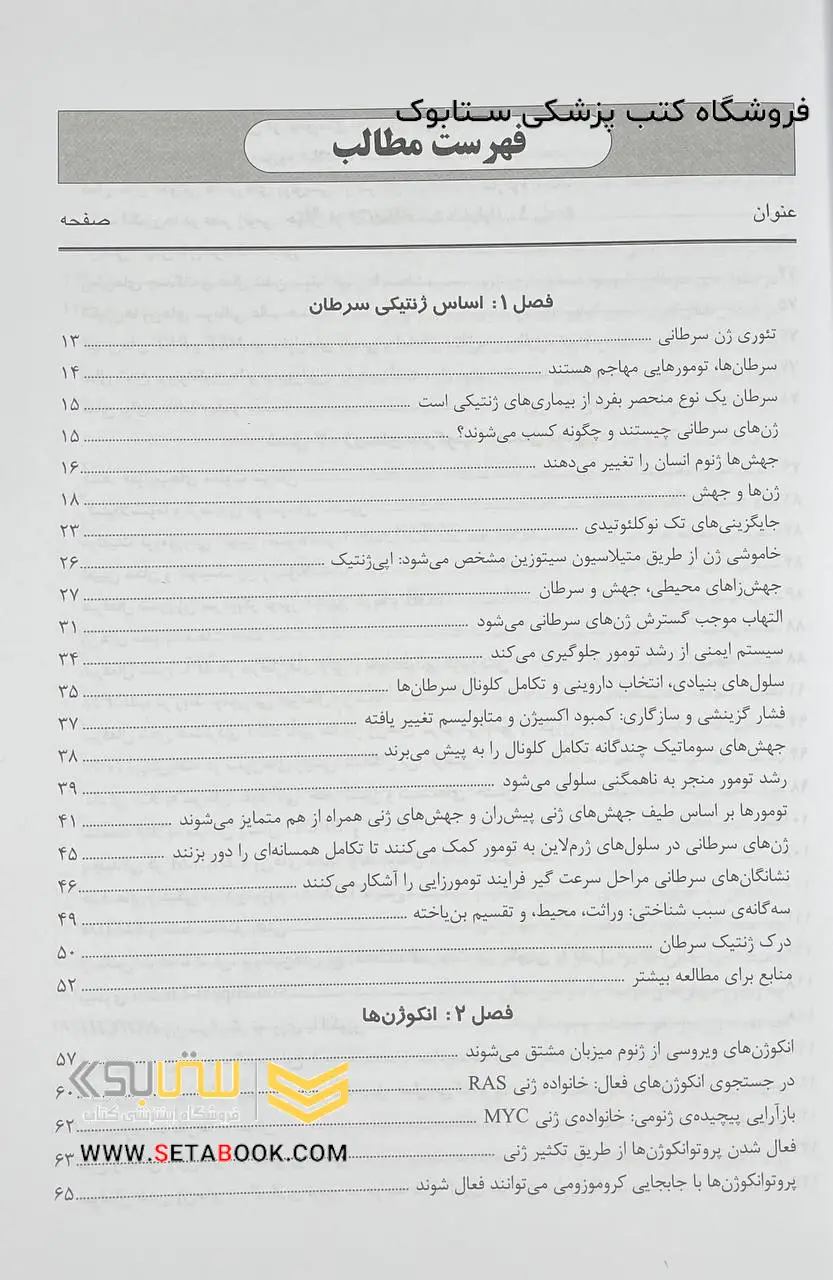 فروشگاه کتب پزشکی ستابوک
فهرست مطالب
عنوان صفحه
فصل ۱: اساس ژنتیکی سرطان
تئوری ژن سرطانی ........ ۱۳
سرطان‌ها، تومورهایی مهاجم هستند ........ ۱۴
سرطان یک نوع منحصر بفرد از بیماری‌های ژنتیکی است ........ ۱۵
ژن‌های سرطانی چیستند و چگونه کسب می‌شوند؟ ........ ۱۵
جهش‌ها ژنوم انسان را تغییر می‌دهند ........ ۱۶
ژن‌ها و جهش ........ ۱۸
جایگزینی‌های تک نوکلئوتیدی ........ ۲۳
خاموشی ژن از طریق متیلاسیون سیتوزین مشخص می‌شود: اپی‌ژنتیک ........ ۲۶
جهش‌زاهای محیطی، جهش و سرطان ........ ۲۷
التهاب موجب گسترش ژن‌های سرطانی می‌شود ........ ۳۱
سیستم ایمنی از رشد تومور جلوگیری می‌کند ........ ۳۴
سلول‌های بنیادی، انتخاب داروینی و تکامل کلونال سرطان‌ها ........ ۳۵
فشار گزینشی و سازگاری: کمبود اکسیژن و متابولیسم تغییر یافته ........ ۳۷
جهش‌های سوماتیک چندگانه تکامل کلونال را به پیش می‌برند ........ ۳۸
رشد تومور منجر به ناهمگنی سلولی می‌شود ........ ۳۹
تومورها بر اساس طیف جهش‌های ژنی پیش‌ران و جهش‌های ژنی همراه از هم متمایز می‌شوند ........ ۴۱
ژن‌های سرطانی در سلول‌های ژرم‌لاین به تومور کمک می‌کنند تا تکامل همسانه‌ای را دور بزنند ........ ۴۵
نشانگان‌های سرطانی مراحل سرعت گیر فرایند تومورزایی را آشکار می‌کنند ........ ۴۶
سه‌گانه‌ی سبب شناختی: وراثت، محیط، و تقسیم بن‌یاخته ........ ۴۹
درک ژنتیک سرطان ........ ۵۰
منابع برای مطالعه بیشتر ........ ۵۲
فصل ۲: انکوژن‌ها
انکوژن‌های ویروسی از ژنوم میزبان مشتق می‌شوند ........ ۵۷
در جستجوی انکوژن‌های فعال: خانواده ژنی RAS ........ ۶۰
بازآرایی پیچیده‌ی ژنومی: خانواده‌ی ژنی MYC ........ ۶۲
فعال شدن پروتوانکوژن‌ها از طریق تکثیر ژنی ........ ۶۳
پروتوانکوژن‌ها با جابجایی کروموزومی می‌توانند فعال شوند ........ ۶۵
ستابوک
فروشگاه اینترنتی کتاب
WWW.SETABOOK.COM